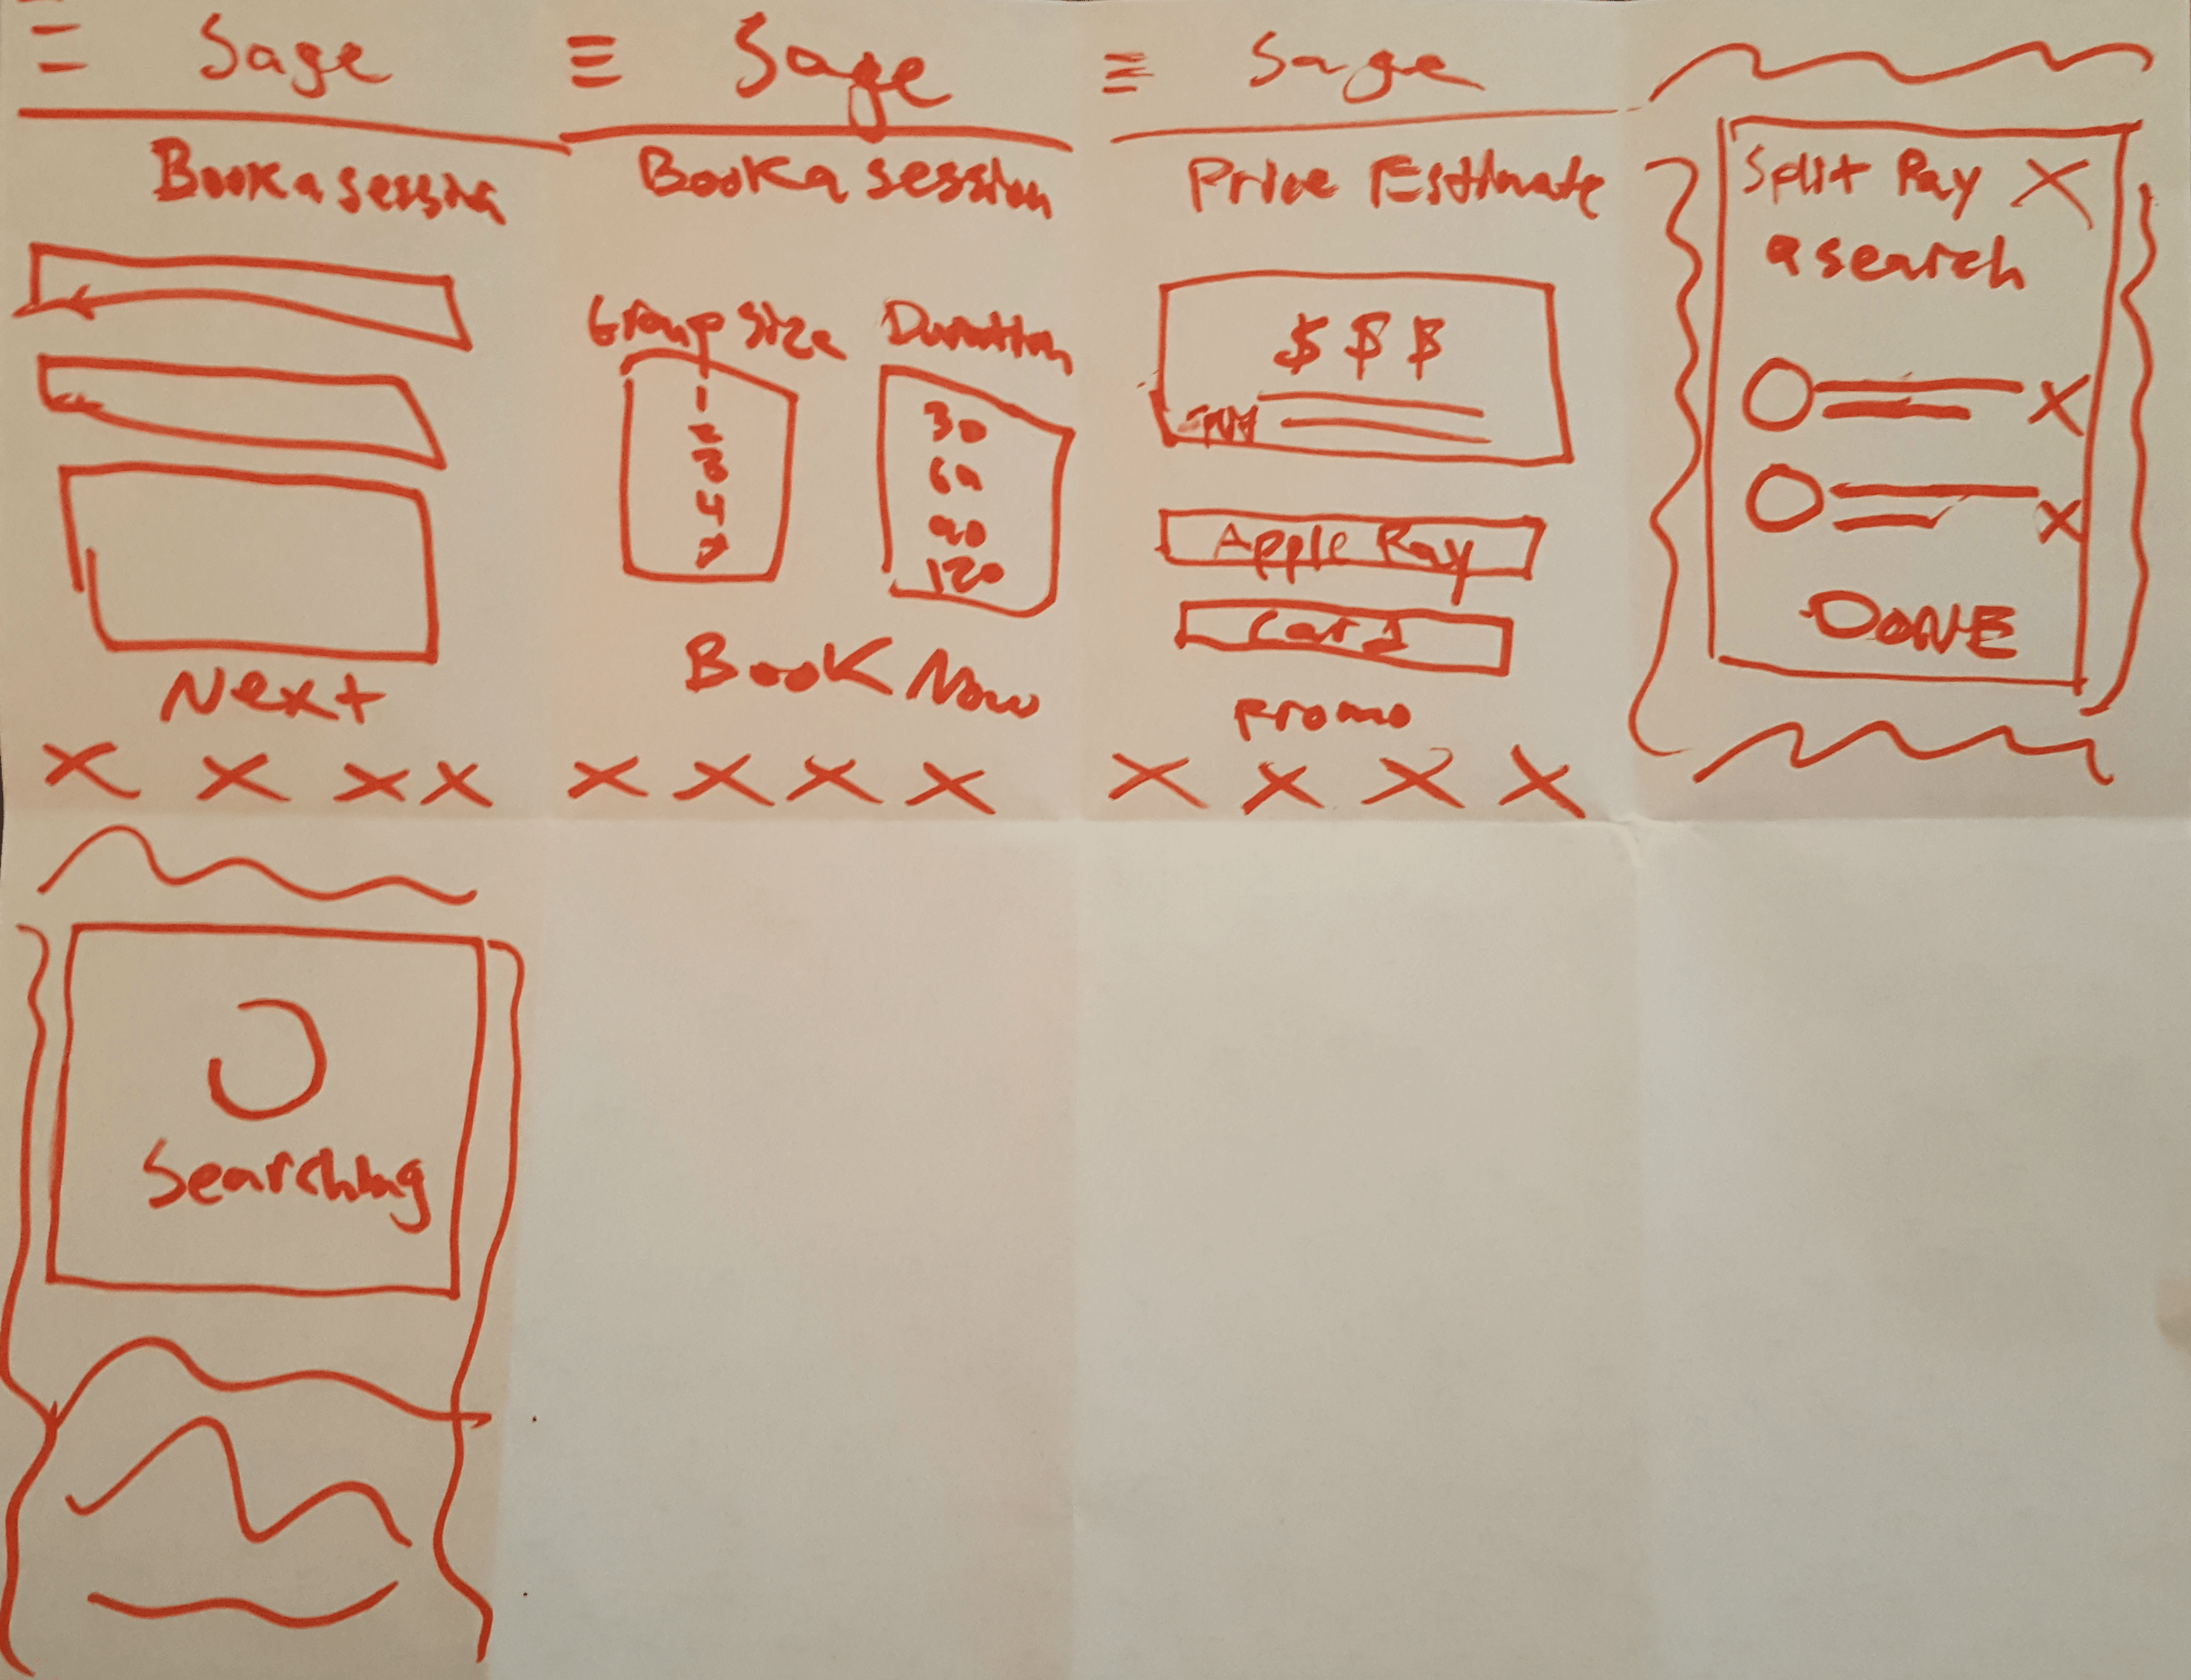 Sage
Book a session
Next
X X X X
Sage
Book a session
Group Size Duration
1
2
3
4
30
60
90
120
Book Now
X X X X
Sage
Price Estimate
$ $ $
Apple Pay
Card
Promo
X X X X
Split Pay X
search
X
X
DONE
Searching